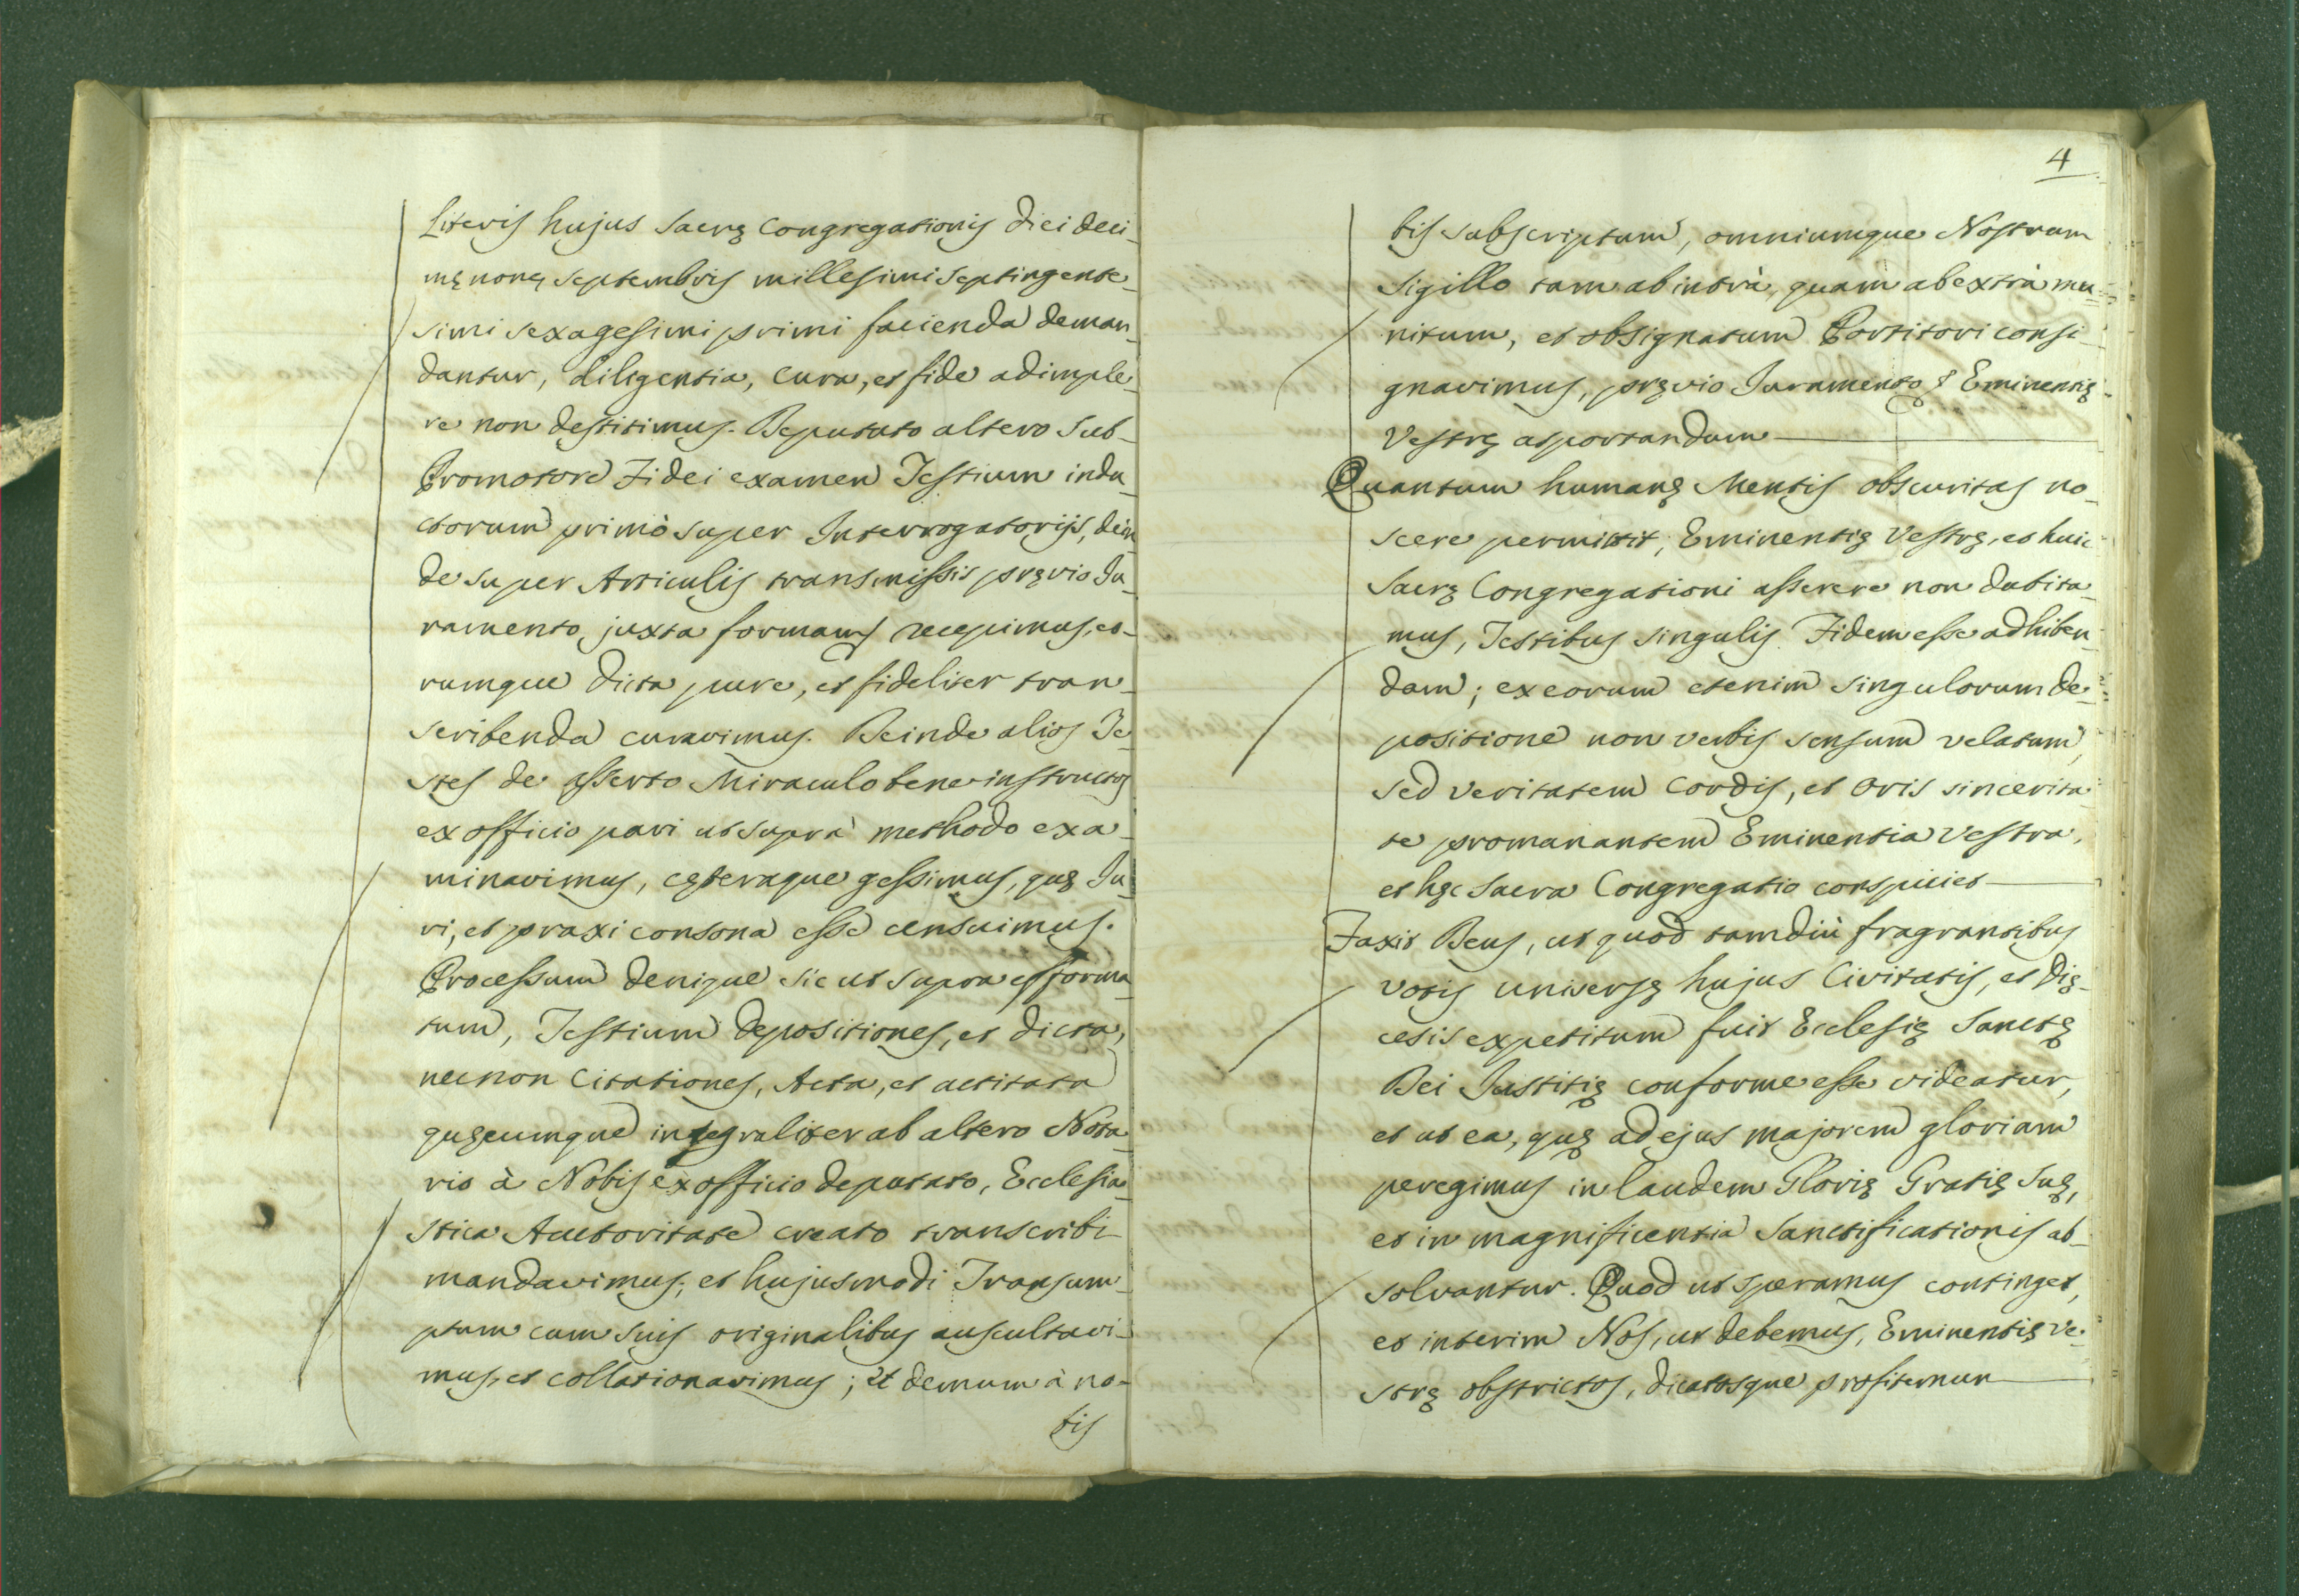 Literis hujus Sacrę Congregationis diei deci-
mę nonę Septembris millesimi Septingente-
simi sexagesimi primi facienda deman-
dantur, diligentia, cura, et fide adimple-
re non destitimus. Deputato altero Sub-
Promotore Fidei examen Testium indu-
ctorum primò super Interrogatorijs, dein-
de super Articulis transmissis pręvio Ju-
ramento, juxta formam recepimus, eo-
rumque dicta pure, et fideliter tran-
scribenda curavimus. Deinde alios Te-
stes de asserto Miraculo bene instructos
ex officio pari ut suprà methodo exa-
minavimus, cęteraque gessimus, quę Ju-
ri, et praxi consona esse censuimus.
Processum denique sic ut supra efforma-
tum, Testium depositiones, et dicta,
necnon Citationes, Acta, et actitata
quęcumque integraliter ab altero Nota-
rio à Nobis ex officio deputato, Ecclesia-
stica Auctoritate creato transcribi
mandavimus; et hujusmodi Transum-
ptum cum suis originalibus auscultavi-
mus, et collationavimus; et demum à no-
bis
4
bis subscriptum, omniumque Nostrum
Sigillo tam ab intrà, quam ab extrà mu-
nitum, et obsignatum Portitori consi-
gnavimus, pręvio Juramento Eminentię
Vestrę asportandum
Quantum humanę Mentis obscuritas no-
scere permittit, Eminentię Vestrę, et huic
Sacrę Congregationi asserere non dubita-
mus, Testibus singulis Fidem esse adhiben-
dam; ex eorum etenim singulorum de-
positione non verbis sensum velatum,
sed veritatem Cordis, et Oris sincerita-
te promanantem Eminentia Vestra,
et hęc Sacra Congregatio conspiciet
Faxit Deus, ut quod tamdiù fragrantibus
votis universę hujus Civitatis, et Dię-
cesis expetitum fuit Ecclesię Sanctę
Dei Justitię conforme esse videatur,
et ut ea, quę ad ejus majorem gloriam
peregimus in laudem Glorię Gratię Suę,
et in magnificentia Sanctificationis ab-
solvantur. Quod ut speramus continget,
et interim Nos, ut debemus, Eminentię Ve-
strę obstrictos, dicatosque profitemur